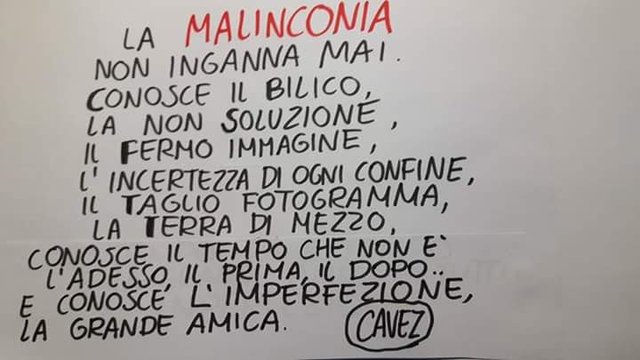 LA MALINCONIA
NON INGANNA MAI.
CONOSCE IL BILICO,
LA NON SOLUZIONE,
IL FERMO IMMAGINE,
L'INCERTEZZA DI OGNI CONFINE,
IL TAGLIO FOTOGRAMMA,
LA TERRA DI MEZZO,
CONOSCE IL TEMPO CHE NON È
L'ADESSO, IL PRIMA, IL DOPO..
E CONOSCE L'IMPERFEZIONE,
LA GRANDE AMICA. CAVEZ